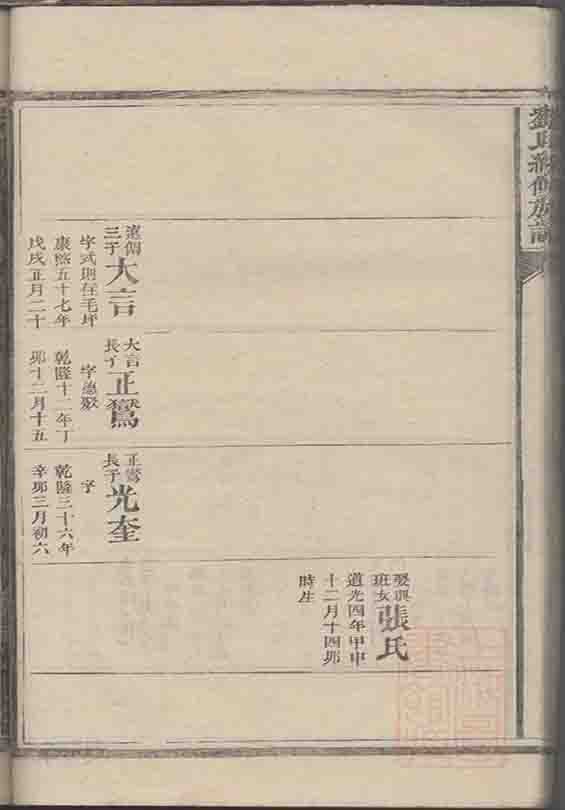 劉氏續修族譜
遠儒三子大言
字式則在毛坪
康熙五十七年
戊戌正月二十
大言長子正鴛
字德聚
乾隆十二年丁
卯十二月十五
正鴛長子光奎
字
乾隆三十六年
辛卯三月初六
娶興班女張氏
道光四年甲申
十二月十四卯
時生